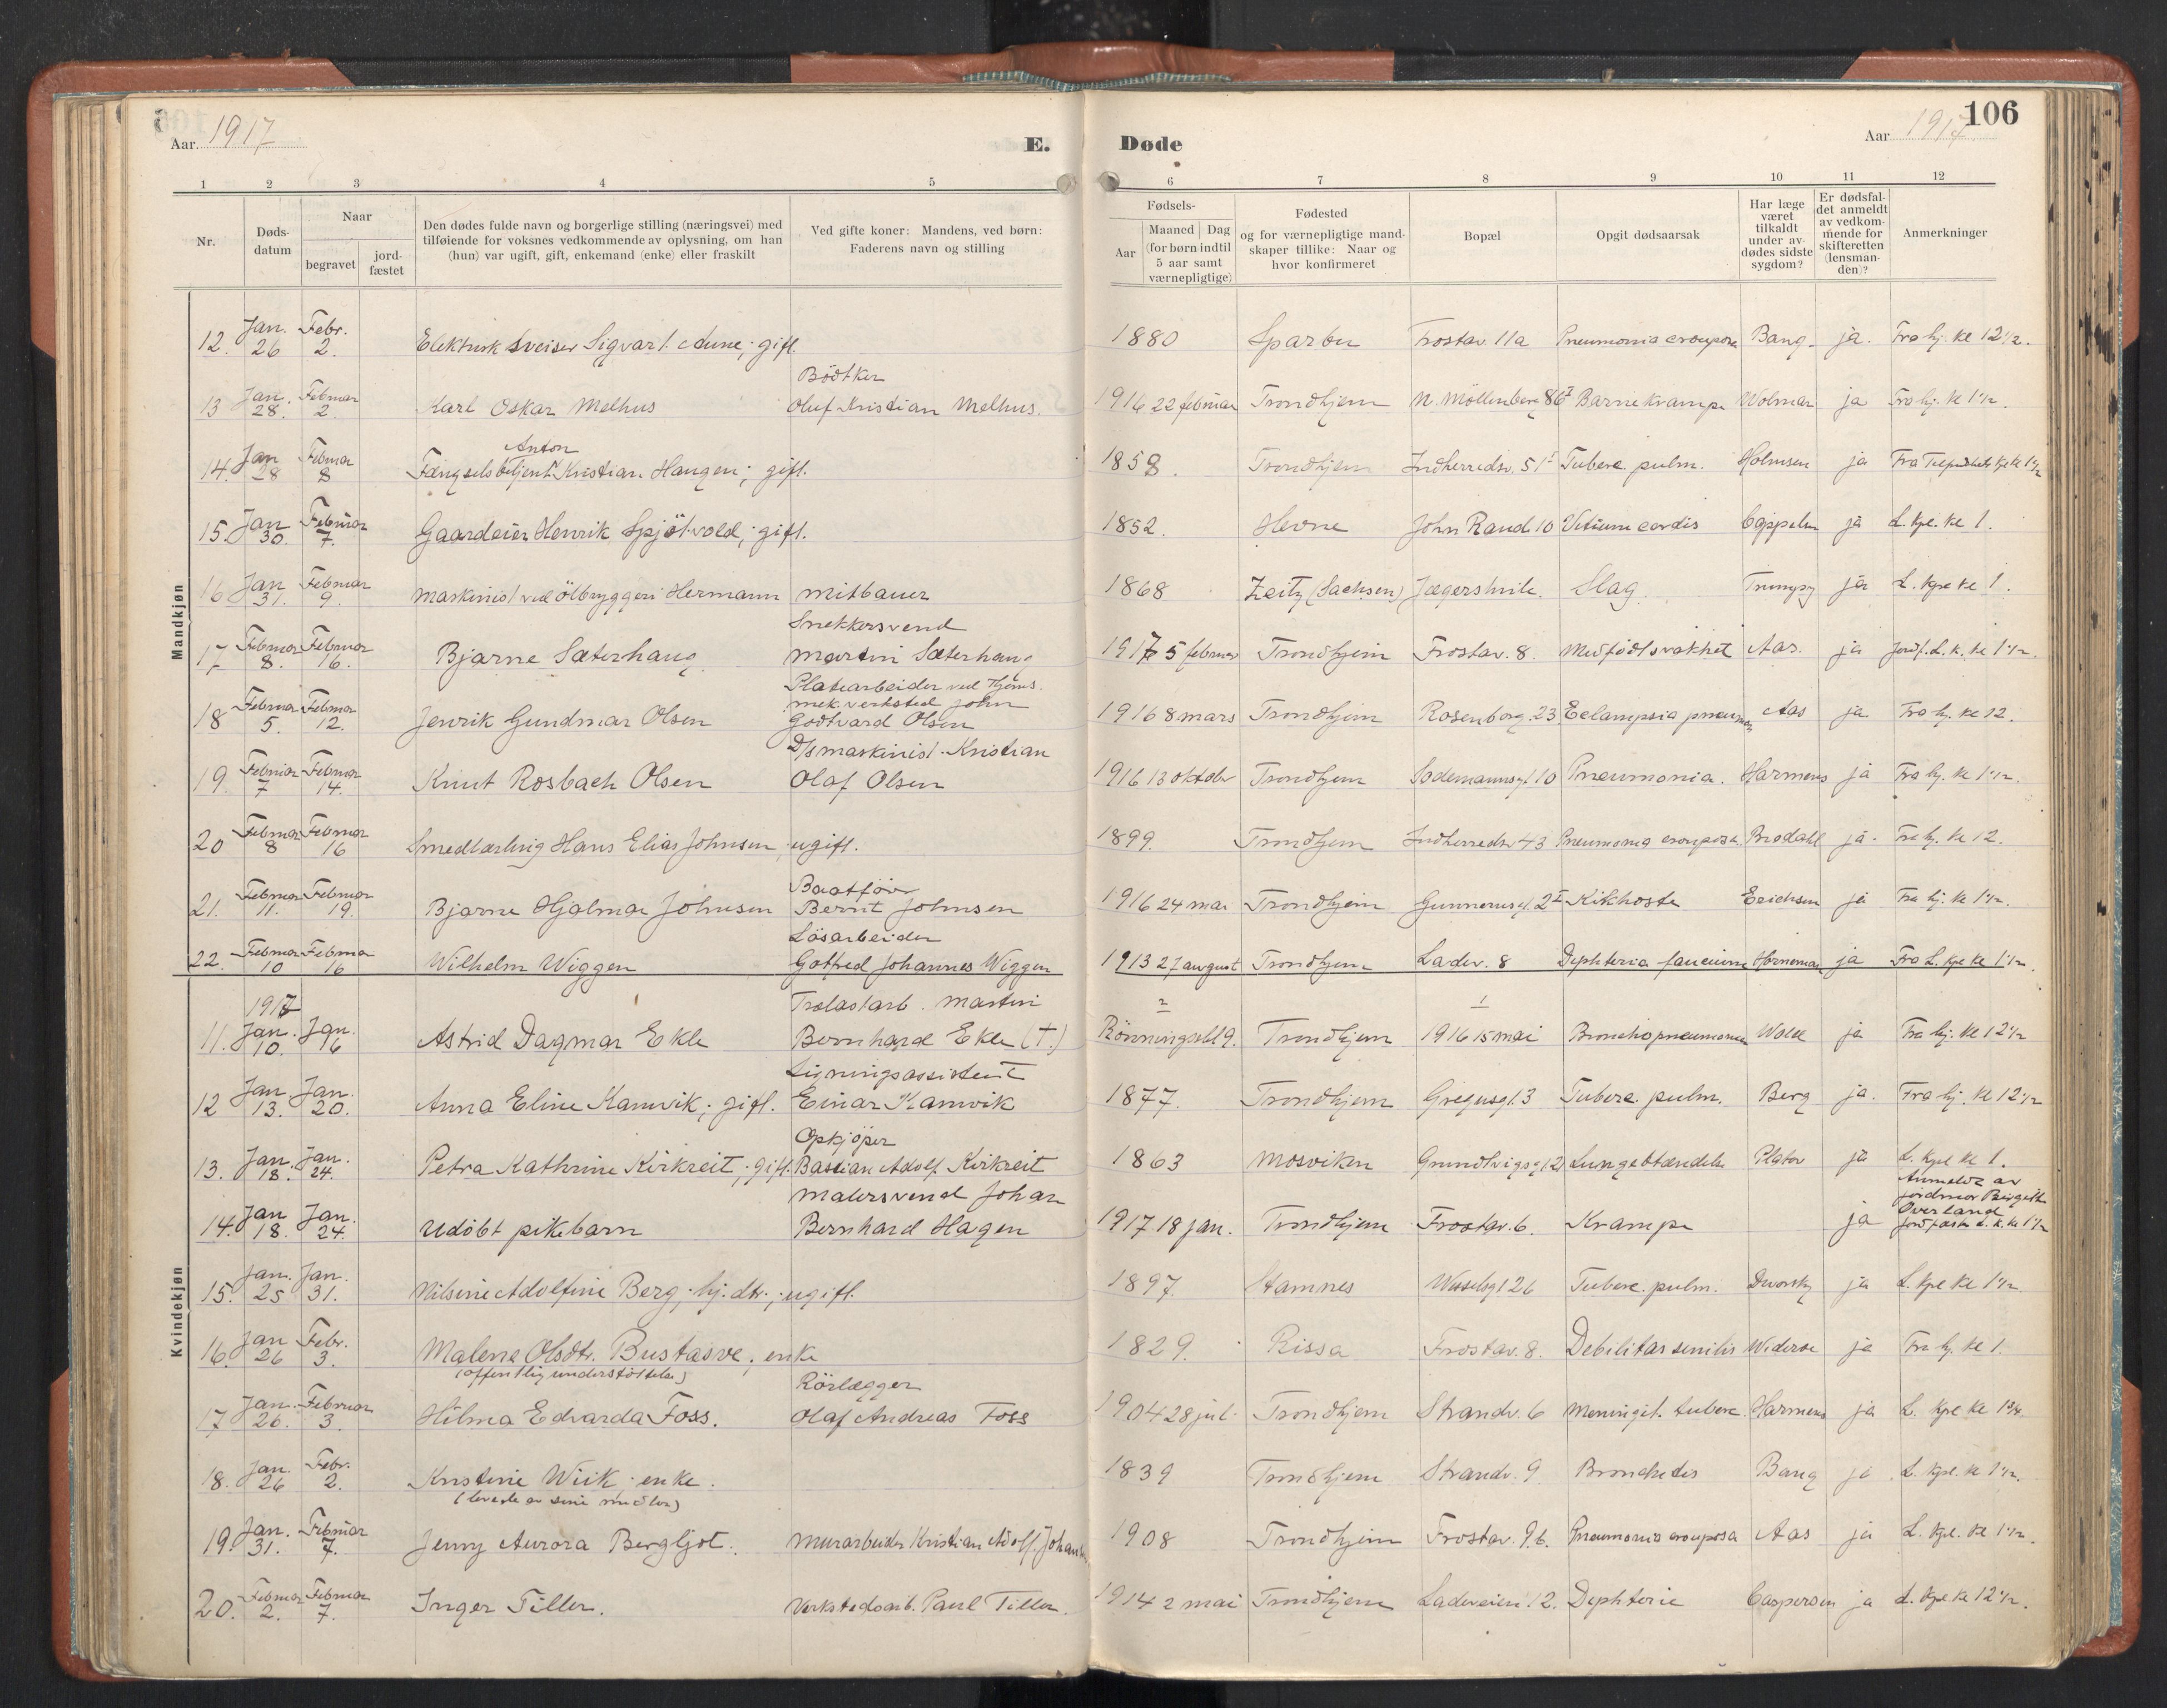 Aar. 1917
E.
Døde
Aar 1917
106
1 2 3 4 5 6 7 8 9 10 11 12
Nr.
Døds-
datum
Naar
begravet
jord-
fæstet
Den dødes fulde navn og borgerlige stilling (næringsvei) med
tilføiende for voksnes vedkommende av oplysning, om han
(hun) var ugift, gift, enkemand (enke) eller fraskilt
Ved gifte koner: Mandens, ved børn:
Faderens navn og stilling
Fødsels-
Aar
Maaned Dag
(for børn indtil
5 aar samt
værnepligtige)
Fødested
og for værnepligtige mand-
skaper tillike: Naar og
hvor konfirmeret
Bopæl
Opgit dødsaarsak
Har læge
været
tilkaldt
under av-
dødes sidste
sygdom?
Er dødsfal-
det anmeldt
av vedkom-
mende for
skifteretten
(lensman-
den)?
Anmerkninger
Mandkjøn
12. Jan. 26 Febr. 2. Elektrisk sveiser Sigvart Aune; gift. 1880 Sparbu Frostav. 11a Pneumonia crouposa Bang. ja. Fra hj. kl 12 1/2.
Bödtker
13 Jan. 28. Februar 2. Karl Oskar Melhus Oluf Kristian Melhus. 1916 22 februar Trondhjem N. Möllenberg 86 I Barnekrampe Wolmar ja Fra hj. kl 1 1/2.
Anton
14. Jan 28 Februar 8 Fængselsbetjent Kristian Haugen; gift. 1858. Trondhjem Indherredsv. 51 I Tuberc. pulm. Holmsen ja Fra kl 1 1/2
15. Jan 30. Februar 7. Gaardeier Henrik Spjötvold; gift. 1852. Hevne John Rand. 10 Vitium cordis ja L. kpl. kl 1.
16 Jan 31. Februar 9. Maskinist ved ölbryggeri Hermann Mitbauer 1868 Zeitz (Sachsen) Jægershvile. Slag. ja L. kpl kl 1.
Snekkersvend
17 Februar 8. Februar 16. Bjarne Sæterhaug Martin Sæterhaug 1917 5 februar Trondhjem Frostav. 8. Medfödt svakhet Aas. ja Jordf. L. k. kl 1 1/2.
Platearbeider ved Thjems.
mek. verksted John
18 Februar 5. Februar 12. Jenrik Gundmar Olsen Godtvard Olsen 1916 8 mars Trondhjem Rosenborg. 23 Eclampsia pneumon Aas ja Fra hj. kl 12.
D/s maskinist. Kristian
19. Februar 7 Februar 14. Knut Rosbach Olsen Olaf Olsen 1916 13 oktober Trondhjem Sodemannsgt. 10 Pneumonia. Harmens ja Fra hj. kl 1 1/2.
20 Februar 8 Februar 16 Smedlærling Hans Elias Johnsen, ugift. 1899. Trondhjem Indherredsv 43 Pneumonia crouposa. Brodahl ja. Fra hj. kl 12.
Baatför
21. Februar 11. Februar 19. Bjarne Hjalmar Johnsen Bernt Johnsen 1916 24 mai Trondhjem Gunnerusgt. 2 I Kikhoste Erichsen ja Fra hj. kl 1 1/2.
Lösarbeider
22. Februar 10 Februar 16 Wilhelm Wiggen Gotfred Johannes Wiggen 1913 27 august Trondhjem Ladev. 8 Diphteria faucium Horneman ja Fra L. kpl kl 1 1/2.
Kvindekjøn
1917 Trælastarb. Martin 2 1
11. Jan. 10. Jan. 16 Astrid Dagmar Ekle Bernhard Ekle (†.) Rönningsbl 9. Trondhjem 1916 15 mai Bronchopneumonia Wold ja Fra hj. kl 12 1/2
Ligningsassistent
12 Jan 13. Jan. 20. Anna Eline Kamvik; gift. Einar Kamvik 1877. Trondhjem Gregusgt. 3 Tuberc. pulm. Berg ja. Fra hj. kl 12 1/2
Opkjöper
13. Jan. 18. Jan. 24. Petra Kathrine Kirkreit; gift. Bastian Adolf Kirkreit 1863 Mosviken Grundtvigsgt. 2 Lungebetændelse Platou ja L. kpl kl 1.
Malersvend Johan Anmeldt av
jordmor Birgitte
Överland
14. Jan 18. Jan. 24. Udöbt pikebarn Bernhard Hagen 1917 18 jan. Trondhjem Frostav. 6. Krampe ja jordfæstn. L. k. kl 1 1/2
15. Jan. 25 Jan. 31. Nilsine Adolfine Berg; hj. dtr.; ugift. 1897. Stamnes Wesselsgt 26 Tuberc. pulm. Dworsky ja L. kpl kl 1 1/2
16. Jan 26 Febr. 3. Malene Olsdtr. Bustasve; enke 1829. Rissa Frostav. 8. Debilitas senilis Wideroe ja Fra hj. kl 1.
(offentlig understöttelse) Rörlægger
17 Jan. 26. Februar 3. Hilma Edvarda Foss. Olaf Andreas Foss 1904 28 juli Trondhjem Strandv. 6 Meningit. tuberc. Harmens ja L. kpl kl 1 3/4
18. Jan. 26 Febr. 2. Kristine Wiik; enke. 1839 Trondhjem Strandv. 9. Bronchitis Bang ja L. kpl. kl 1 1/2.
(levede av sine midler)
19. Jan. 31. Februar 7. Jenny Aurora Bergljot. Murarbeider Kristian Adolf Johansen 1908 Trondhjem Frostav. 9 b. Pneumonia crouposa Aas ja L. kpl. kl 1 1/2.
20. Februar 2. Februar 7. Inger Tiller. Verkstedsarb. Paul Tiller. 1914 2 mai Trondhjem Ladeveien 12. Diphterie Caspersen ja L. kpl. kl 12 1/2.